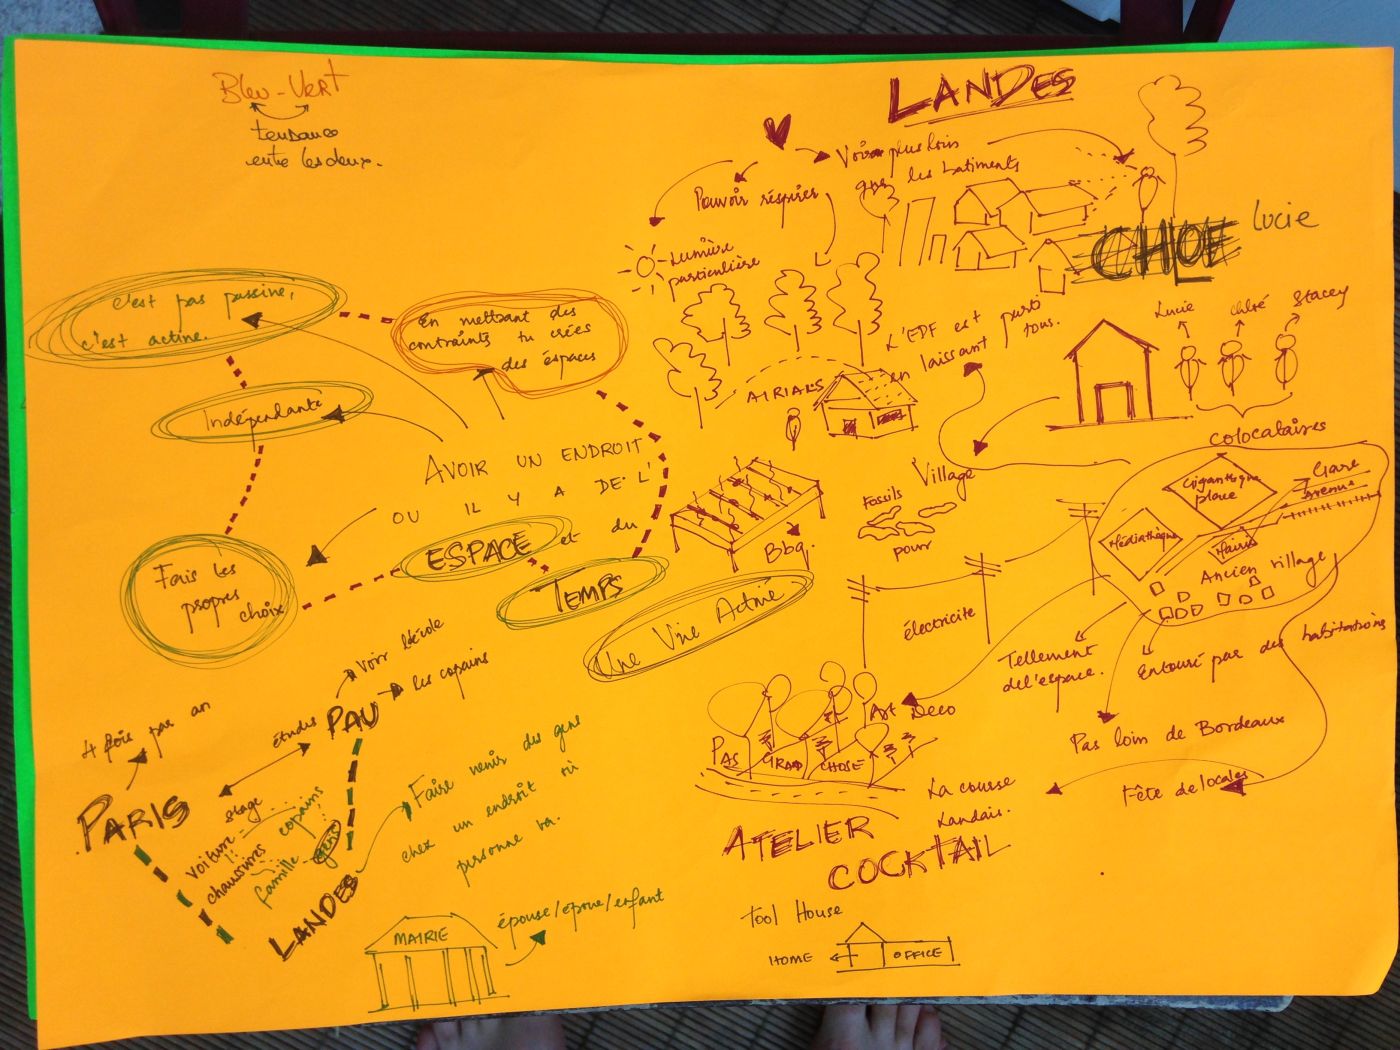 Bleu-Vert
tendance
entre les deux.
LANDES
Voir plus loin
que les batiments
Pouvoir réspirer
Lumière
particulière
CHLOE Lucie
c'est pas passine,
c'est actine.
En mettant des
contraints tu crées
des éspaces
Indépendante
AVOIR UN ENDROIT
OU IL Y A DE L'
ESPACE et du
TEMPS
Fais les
propres
choix
Une Vie Active
AIRIALS
L'EDF est parti
en laissant tous.
Lucie Chloé Stacey
colocataires
Village
Fossils
pour
électricite
Bbq.
Gigantesque
place
Gare
avenue
Médiathèque
Mairie
Ancien village
Tellement
de l'espace.
Entouré par des habitations
Pas loin de Bordeaux
Fête de locales
La course
Landais.
Art Deco
PAS GRAND CHOSE
ATELIER
COCKTAIL
Tool House
HOME
OFFICE
Voir l'école
les copains
PAU
études
4 fois par an
PARIS
stage
voiture
copains
chaussures
famille
LANDES
Faire venir des gens
chez un endroit où
personne va.
MAIRIE
épouse/époue/enfant